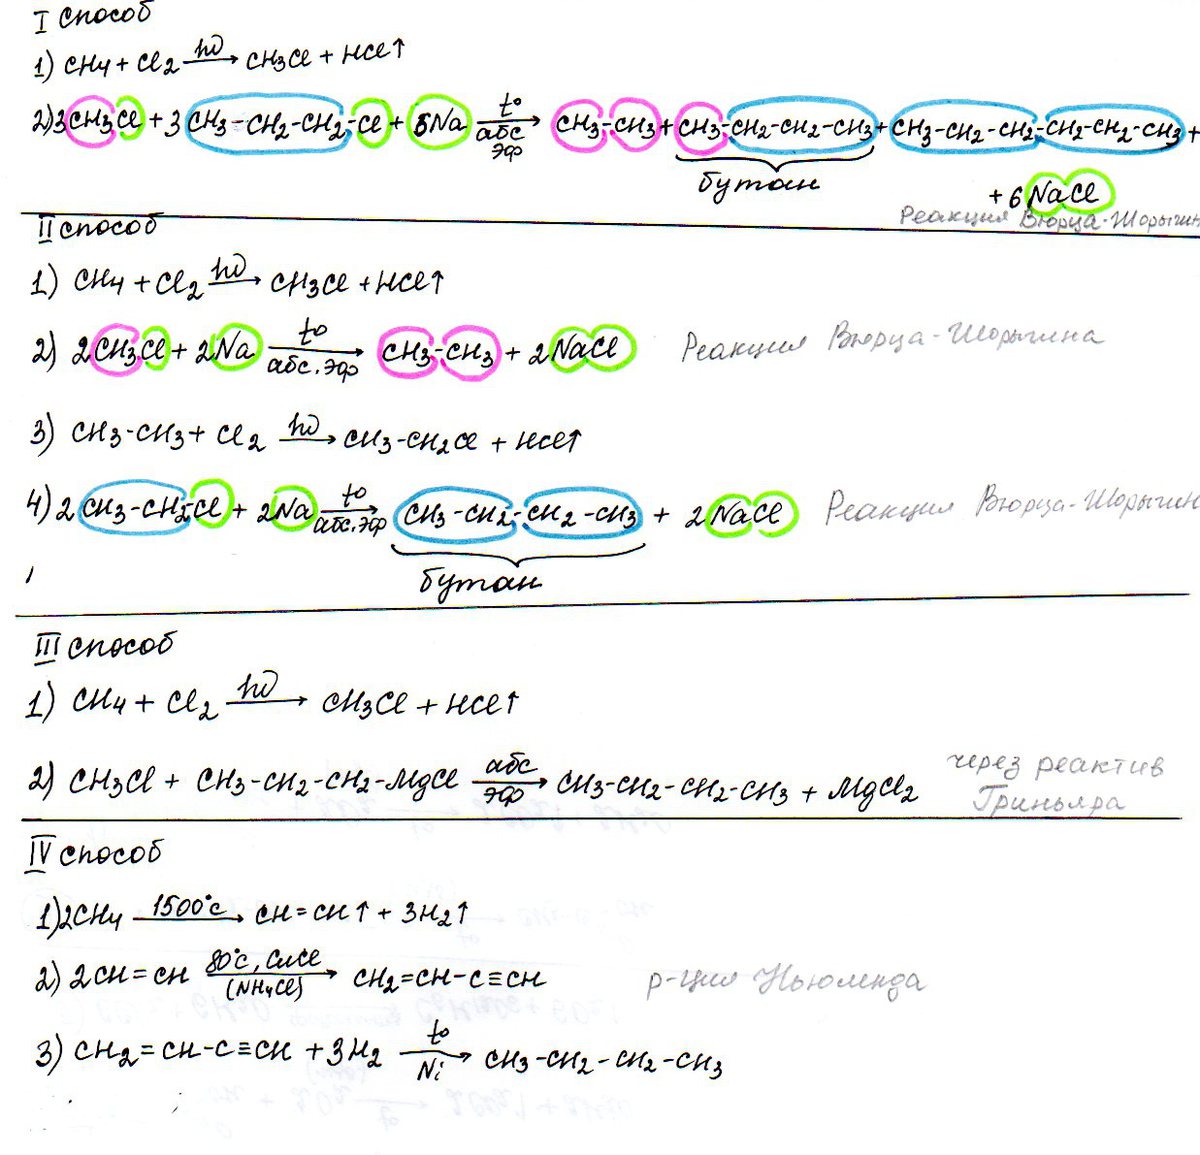 I способ
1) CH4 + Cl2 hν→ CH3Cl + HCl↑
2) 3CH3Cl + 3 CH3-CH2-CH2-Cl + 6Na t° абс эф → CH3-CH3 + CH3-CH2-CH2-CH3 + CH3-CH2-CH2-CH2-CH2-CH3 +
бутан
+ 6NaCl
Реакция Вюрца-Шорыгин
II способ
1) CH4 + Cl2 hν→ CH3Cl + HCl↑
2) 2CH3Cl + 2Na t° абс. эф → CH3-CH3 + 2NaCl Реакция Вюрца-Шорыгина
3) CH3-CH3 + Cl2 hν→ CH3-CH2Cl + HCl↑
4) 2 CH3-CH2Cl + 2Na t° абс. эф → CH3-CH2-CH2-CH3 + 2NaCl Реакция Вюрца-Шорыгин
бутан
III способ
1) CH4 + Cl2 hν→ CH3Cl + HCl↑
2) CH3Cl + CH3-CH2-CH2-MgCl абс эф → CH3-CH2-CH2-CH3 + MgCl2 через реактив
Гриньяра
IV способ
1) 2CH4 1500°C → CH=CH↑ + 3H2↑
2) 2CH=CH 80°C, CuCl (NH4Cl) → CH2=CH-C≡CH р-ция Ньюленда
3) CH2=CH-C≡CH + 3H2 t° Ni → CH3-CH2-CH2-CH3